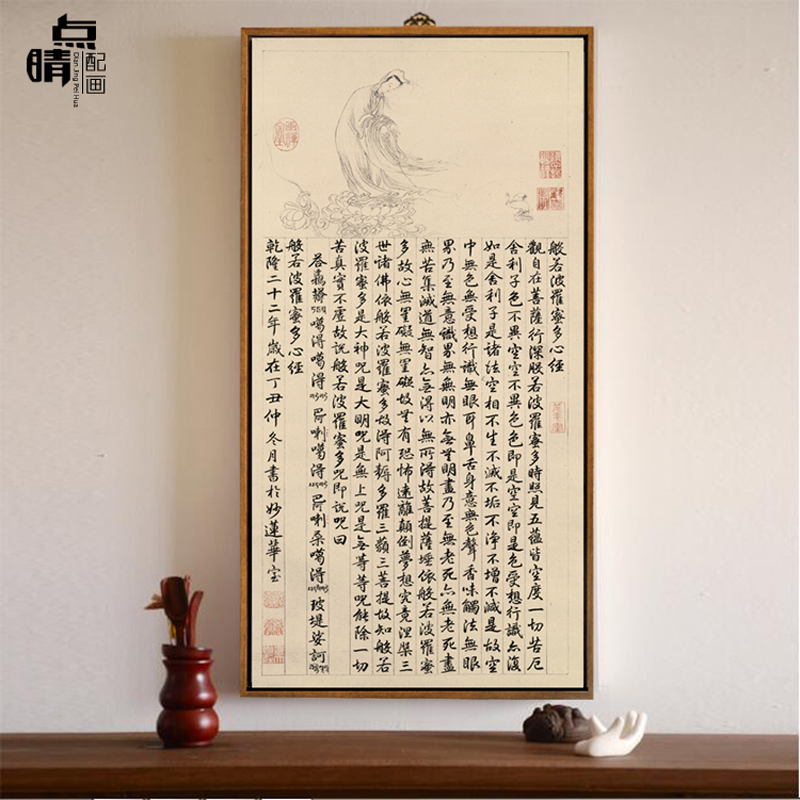 点睛
配画
Dian Jing Pei Hua
般若波羅蜜多心經
觀自在菩薩行深般若波羅蜜多時照見五蘊皆空度一切苦厄
舍利子色不異空空不異色色即是空空即是色受想行識亦復
如是舍利子是諸法空相不生不滅不垢不淨不增不減是故空
中無色無受想行識無眼耳鼻舌身意無色聲香味觸法無眼
界乃至無意識界無無明亦無無明盡乃至無老死亦無老死盡
無苦集滅道無智亦無得以無所得故菩提薩埵依般若波羅蜜
多故心無罣礙無罣礙故無有恐怖遠離顛倒夢想究竟涅槃三
世諸佛依般若波羅蜜多故得阿耨多羅三藐三菩提故知般若
波羅蜜多是大神呪是大明呪是無上呪是無等等呪能除一切
苦真實不虛故說般若波羅蜜多呪即說呪曰
噶得噶得 巴喇噶得 巴喇桑噶得 玻堤娑訶
般若波羅蜜多心經
乾隆二十二年歲在丁丑仲冬月書於妙蓮華室